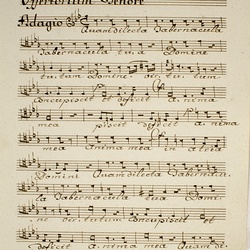 Offertorium Tenore
Adagio Quam dilecta Tabernacula
Tabernacula tua Domine
tutum Domine vir tu tum
Concupiscit et deficit anima
mea piscit deficit anima
mea anima mea in atria
Domini Quam dilecta Tabernacu
la Tabernacula tua Domi
ne virtutum Concupiscit et
deficit anima mea Quam di